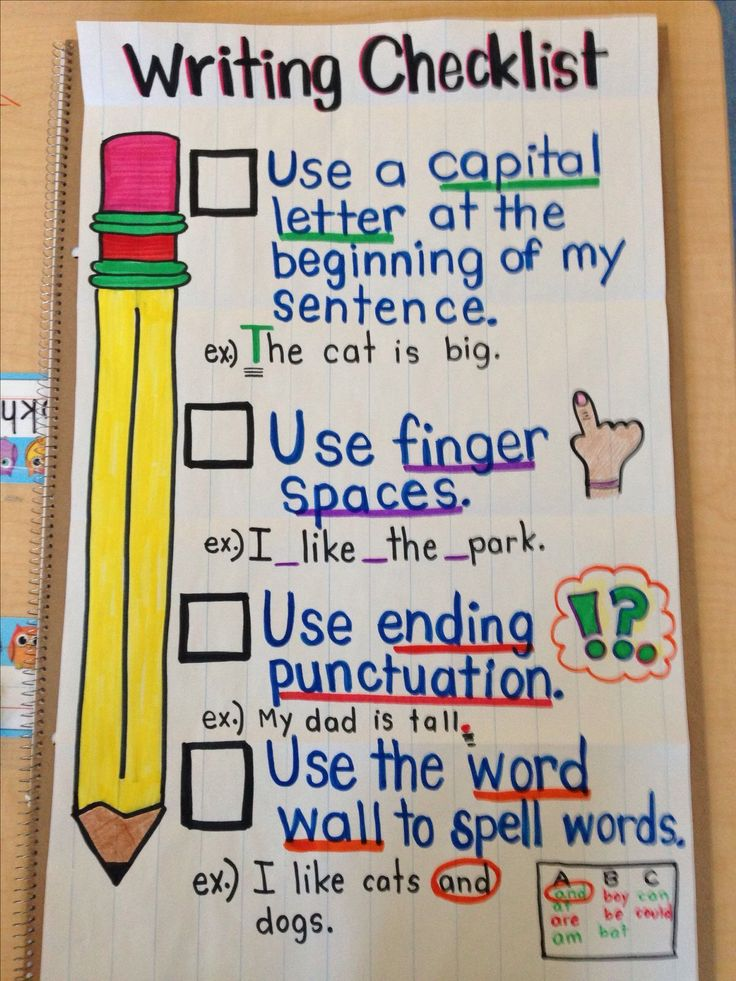 Writing Checklist
Use a capital
letter at the
beginning of my
sentence.
ex.) The cat is big.
Use finger
spaces.
ex.) I_like_the_park.
Use ending
punctuation.
!?.
ex.) My dad is tall.
Use the word
wall to spell words.
ex.) I like cats and
dogs.
A B C
and boy can
at
are be could
am bat
kh